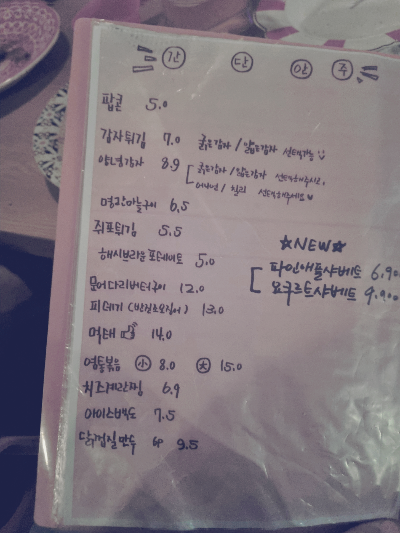 간 단 안 주
팝콘 5.0
감자튀김 7.0 굵은감자 / 얇은감자 선택가능
양념감자 8.9 굵은감자 / 얇은감자 선택해주시고,
어니언 / 칠리 선택해주세요
명란마늘구이 6.5
쥐포튀김 5.5
해시브라운 포테이토 5.0
문어다리버터구이 12.0
피데기 (반건조오징어) 13.0
먹태 14.0
☆NEW☆
파인애플샤베트 6.90
요쿠르트샤베트 9.900
염통볶음 小 8.0 大 15.0
치즈계란찜 6.9
아이스백도 7.5
닭껍질만두 6P 9.5